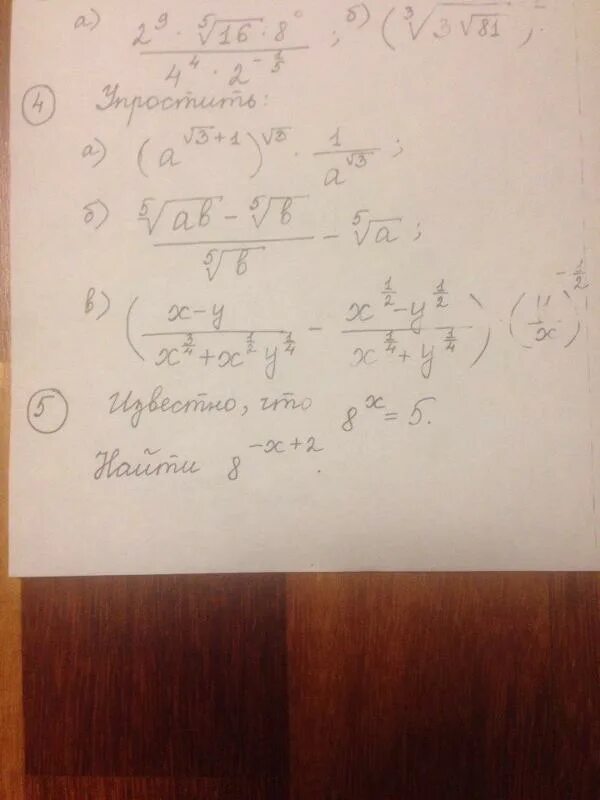 а) (2^9 · ⁵√16 · 8^0) / (4^4 · 2^(-1/5)) ; б) (³√(3√81)
④ Упростить:
а) (a^(√3+1))^√3 · 1/a^√3 ;
б) (⁵√(ab) - ⁵√b) / ⁵√b - ⁵√a ;
в) ((x-y) / (x^(3/4) + x^(1/2) y^(1/4)) - (x^(1/2) - y^(1/2)) / (x^(1/4) + y^(1/4))) · (y/x)^(-1/2)
⑤ Известно, что 8^x = 5.
Найти 8^(-x+2).